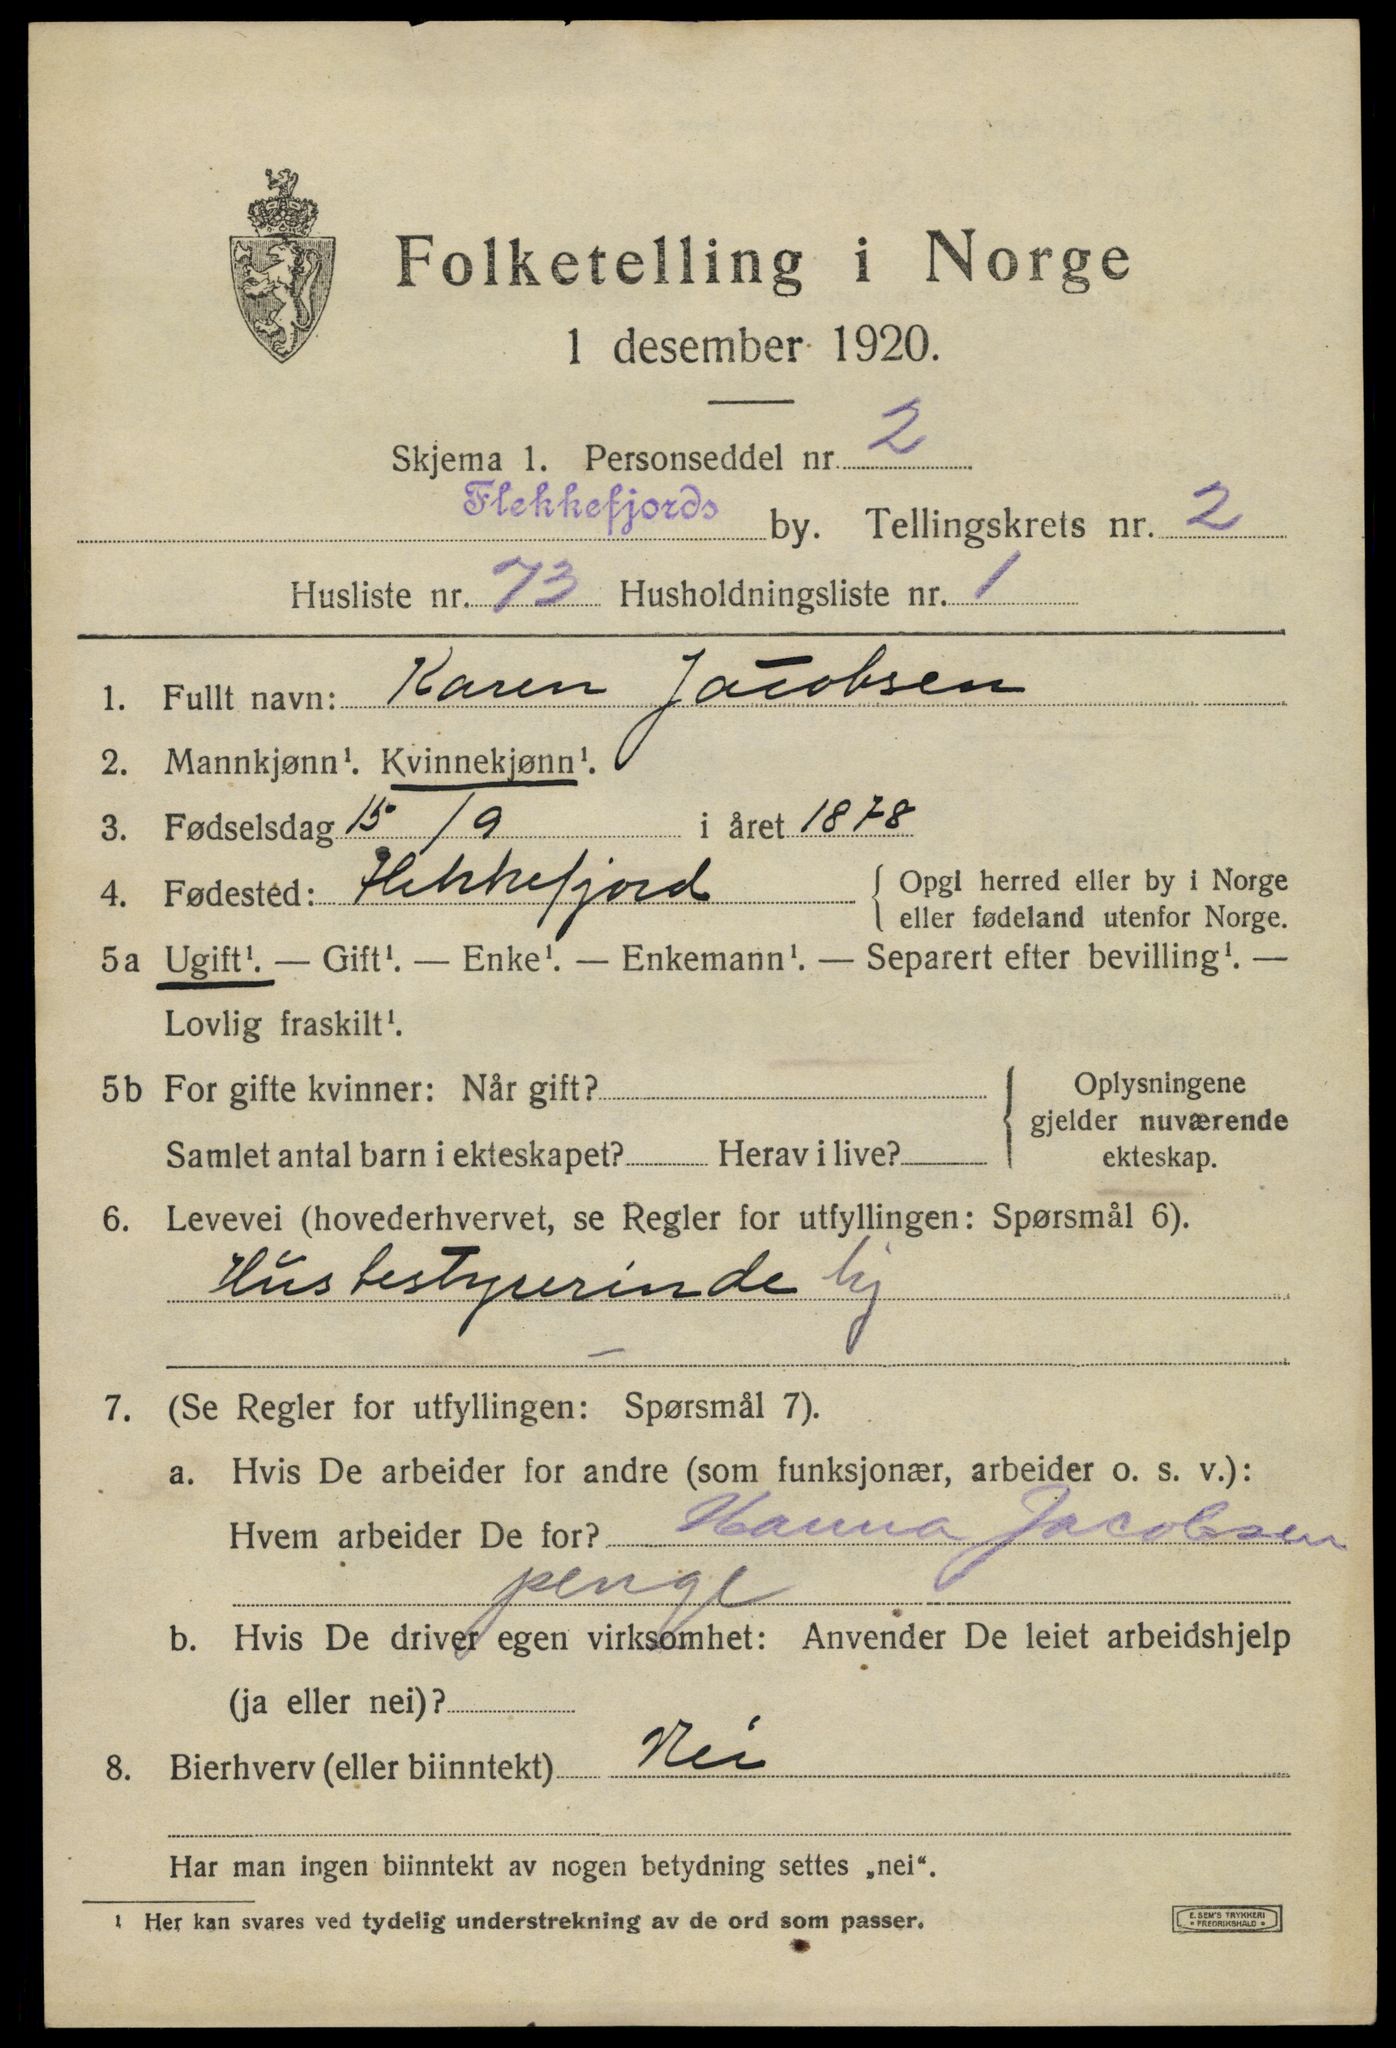 Folketelling i Norge
1 desember 1920.
Skjema 1. Personseddel nr. 2
Flekkefjords by. Tellingskrets nr. 2
Husliste nr. 73 Husholdningsliste nr. 1
1. Fullt navn: Karen Jacobsen
2. Mannkjønn¹. Kvinnekjønn¹.
3. Fødselsdag 15/9 i året 1878
4. Fødested: Flekkefjord { Opgi herred eller by i Norge
eller fødeland utenfor Norge.
5a Ugift¹. — Gift¹. — Enke¹. — Enkemann¹. — Separert efter bevilling¹. —
Lovlig fraskilt¹.
5b For gifte kvinner: Når gift? { Oplysningene
gjelder nuværende
Samlet antal barn i ekteskapet? Herav i live? ekteskap.
6. Levevei (hovederhvervet, se Regler for utfyllingen: Spørsmål 6).
Husbestyrerinde hj
7. (Se Regler for utfyllingen: Spørsmål 7).
a. Hvis De arbeider for andre (som funksjonær, arbeider o. s. v.):
Hvem arbeider De for? Hanna Jacobsen
penge
b. Hvis De driver egen virksomhet: Anvender De leiet arbeidshjelp
(ja eller nei)?
8. Bierhverv (eller biinntekt) Nei
Har man ingen biinntekt av nogen betydning settes „nei“.
¹ Her kan svares ved tydelig understrekning av de ord som passer.
E. SEM'S TRYKKERI
• FREDRIKSHALD •